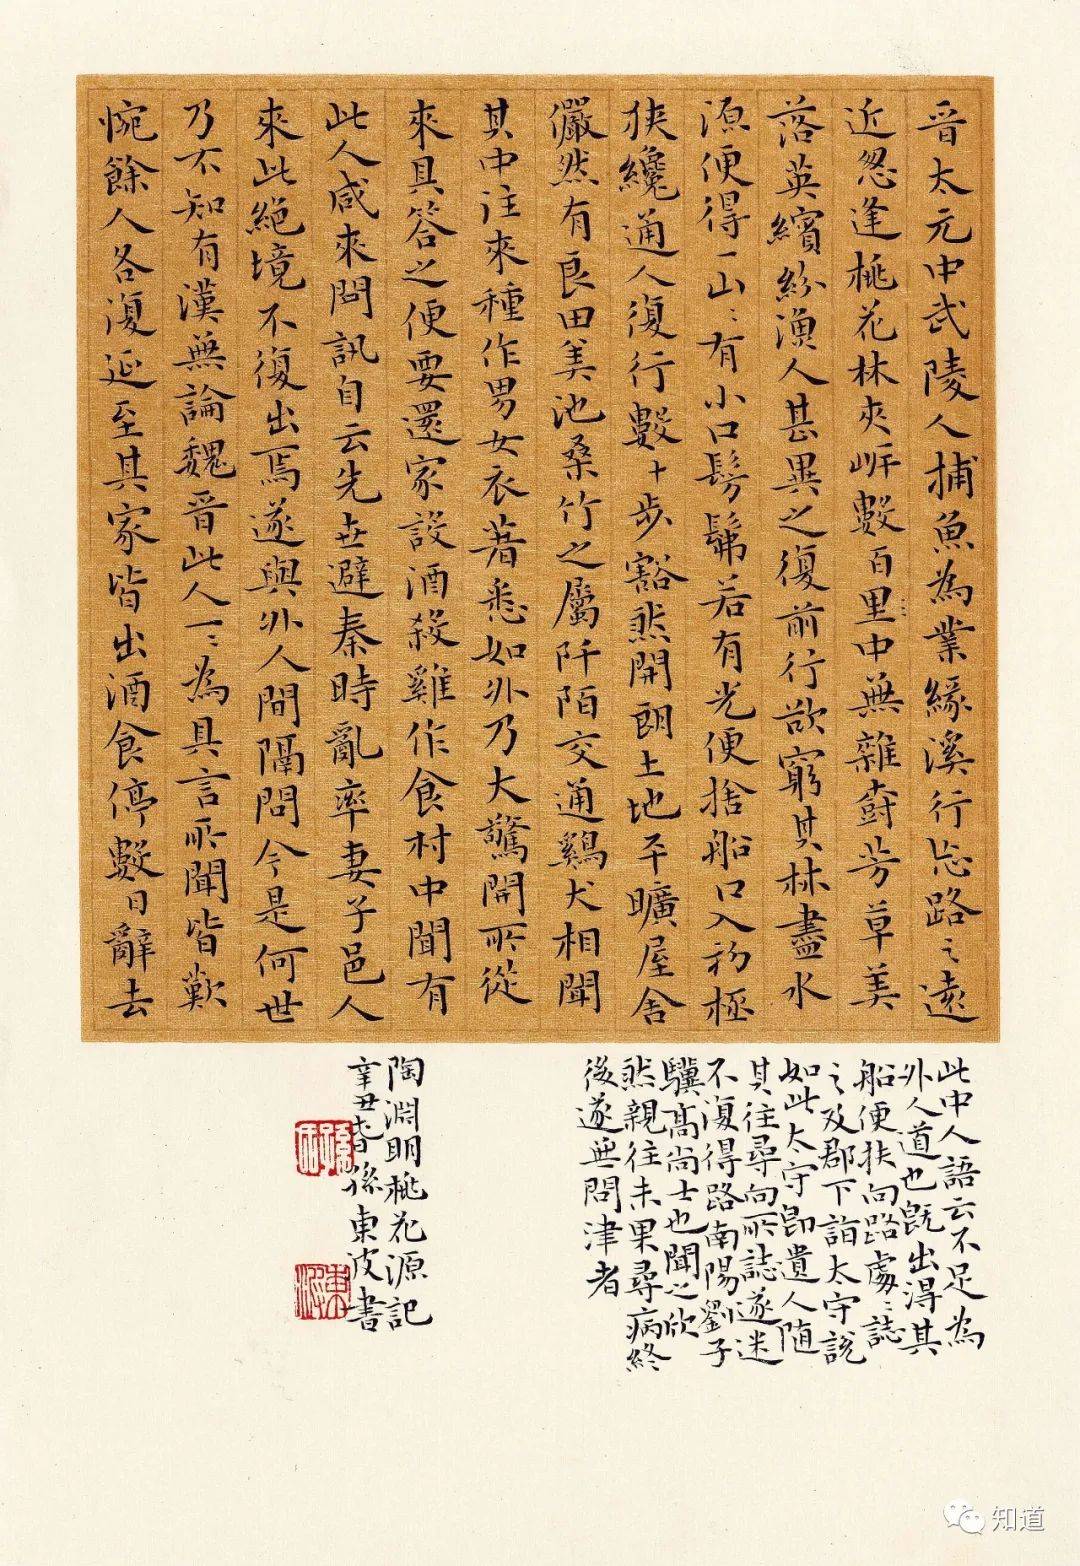 晉太元中武陵人捕魚為業緣溪行忘路之遠
近忽逢桃花林夾岸數百里中無雜樹芳草美
落英繽紛漁人甚異之復前行欲窮其林盡水
源便得一山〻有小口髣髴若有光便捨船口入初極
狹纔通人復行數十步豁然開朗土地平曠屋舍
儼然有良田美池桑竹之屬阡陌交通鷄犬相聞
其中往來種作男女衣著悉如外乃大驚開所從
來具答之便要還家設酒殺雞作食村中聞有
此人咸來問訊自云先世避秦時亂率妻子邑人
來此絕境不復出焉遂與外人間隔問今是何世
乃不知有漢無論魏晉此人一〻為具言所聞皆歎
惋餘人各復延至其家皆出酒食停數日辭去
此中人語云不足為
外人道也既出得其
船便扶向路處〻誌
之及郡下詣太守說
如此太守即遣人隨
其往尋向所誌遂迷
不復得路南陽劉子
驥高尚士也聞之欣
然親往未果尋病終
後遂無問津者
陶淵明桃花源記
辛丑春孫東波書
知道